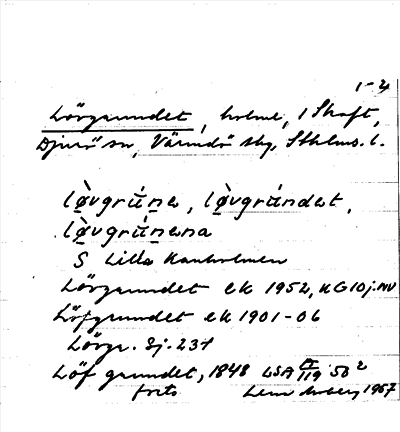 1-2
Lövgrundet, holme, 1 Skaft,
Djurö sn, Värmdö skg, Sthlms. l.
lø̀vgrúnə, lø̀vgrúndət,
lø̀vgrúnəna
S Lilla Kanholmen
Lövgrundet ek 1952, KG 10j. NV
Löfgrundet ek 1901-06
Lövgr. Sj. 231
Löf grundet, 1848 LSA 119: 50²
frits 1967